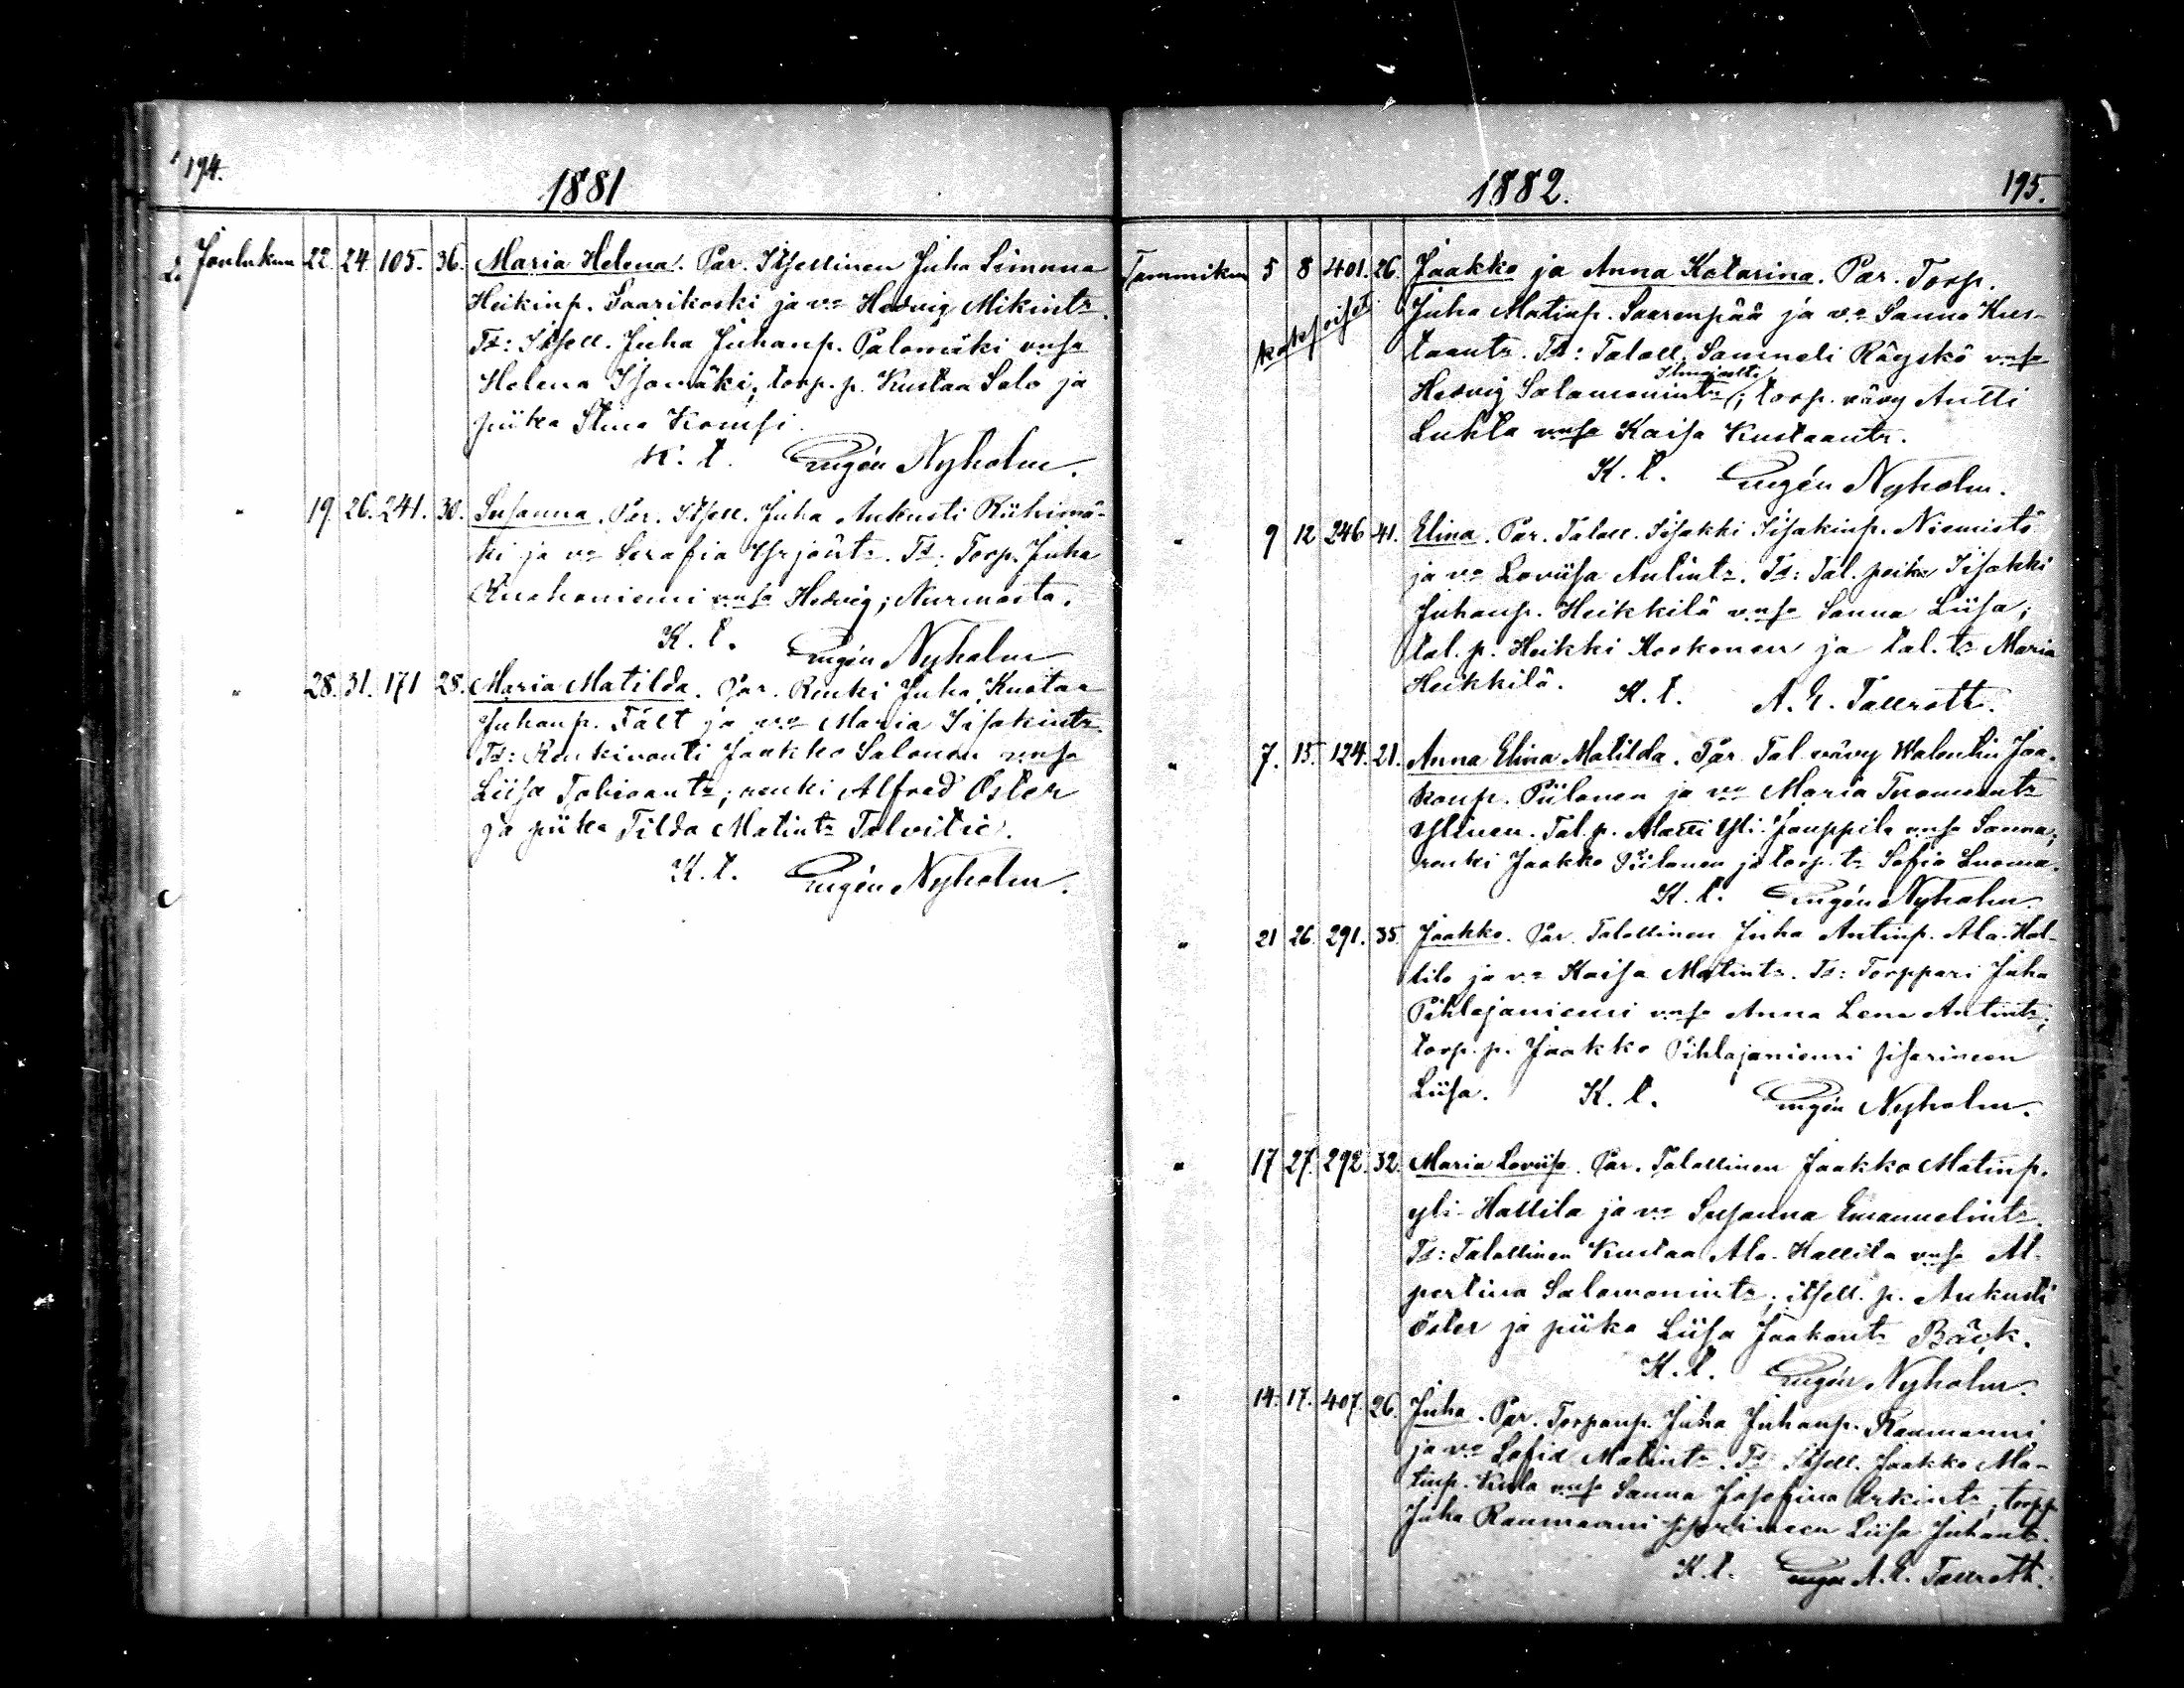 194.
1881
Joulukuu 22. 24. 105. 36. Maria Helena. Par. Itsellinen Juha Simuna
Heikinp. Saarikoski ja vo Hedvig Mikintr.
Td: Itsell. Juha Juhanp. Palomäki vnsa
Helena Isomäki; torp. p. Kustaa Salo ja
piika Stina Kompsi.
K. t. Eugén Nyholm.
" 19. 26. 241. 30. Susanna. Par. Itsell. Juha Aukusti Riihimä-
ki ja vo Serafia Yrjöntr. Td: Torp. Juha
vnsa Hedvig; Nurmosta.
K. t. Eugén Nyholm
" 28. 31. 171 28. Maria Matilda. Par. Renki Juha Kustaa
Juhanp. Fält ja vo Maria Iisakintr.
Td: Renkivouti Jaakko Salonen vnsa
Liisa Tobiaantr; renki Alfred Öster
ja piika Tilda Matintr Talvitie.
K. t. Eugén Nyholm.
1882.
195.
Tammikuu 5 8 401. 26. Jaakko ja Anna Katarina. Par. Torp.
kaksoiset Juha Matinp. Saarenpää ja vo Sanna Kus-
taantr. Td: Taloll. Sameli Räyskö vnsa
Ilmajoelta
Hedvig Salamonintr; torp. vävy Antti
Luhta vnsa Kaisa Kustaantr.
K. t. Eugén Nyholm.
" 9 12 246 41. Elina. Par. Taloll. Iisakki Iisakinp. Niemistö
ja vo Loviisa Antintr. Td: Tal. poika Iisakki
Juhanp. Heikkilä vnsa Sanna Liisa;
tal. p. Heikki Koskonen ja tal. tr Maria
Heikkilä. K. t. A. E. Tallroth.
" 7. 15. 124. 21. Anna Elina Matilda. Par. Tal. vävy Walentin Jaa-
konp. Piilonen ja vo Maria Tuomaantr
Ylinen. Tal. p. Matti Yli-Jauppila vnsa Sanna;
renki Jaakko Piilonen ja torp. tr Sofia Luoma.
K. t. Eugén Nyholm.
" 21 26. 291. 35. Jaakko. Par. Talollinen Juha Antinp. Ala-Hal-
lila ja vo Kaisa Matintr. Td: Torppari Juha
Pihlajaniemi vnsa Anna Lena Antintr;
torp. p. Jaakko Pihlajaniemi sisarineen
Liisa. K. t. Eugén Nyholm.
" 17 27. 292. 32. Maria Loviisa. Par. Talollinen Jaakko Matinp.
yli-Hallila ja vo Susanna Emanuelintr.
Td: Talollinen Kustaa Ala-Hallila vnsa Al-
pertina Salomonintr; itsell. p. Aukusti
Öster ja piika Liisa Jaakontr Bäck.
K. t. Eugén Nyholm.
" 14. 17. 407. 26. Juha. Par. Torpanp. Juha Juhanp. Raumanni
ja vo Sofia Matintr. Td: Itsell. Jaakko Ma-
tinp. vnsa Sanna Josefina Erkintr; torpp.
Juha Raumanni sisarineen Liisa Juhantr.
K. t. A. E. Tallroth.